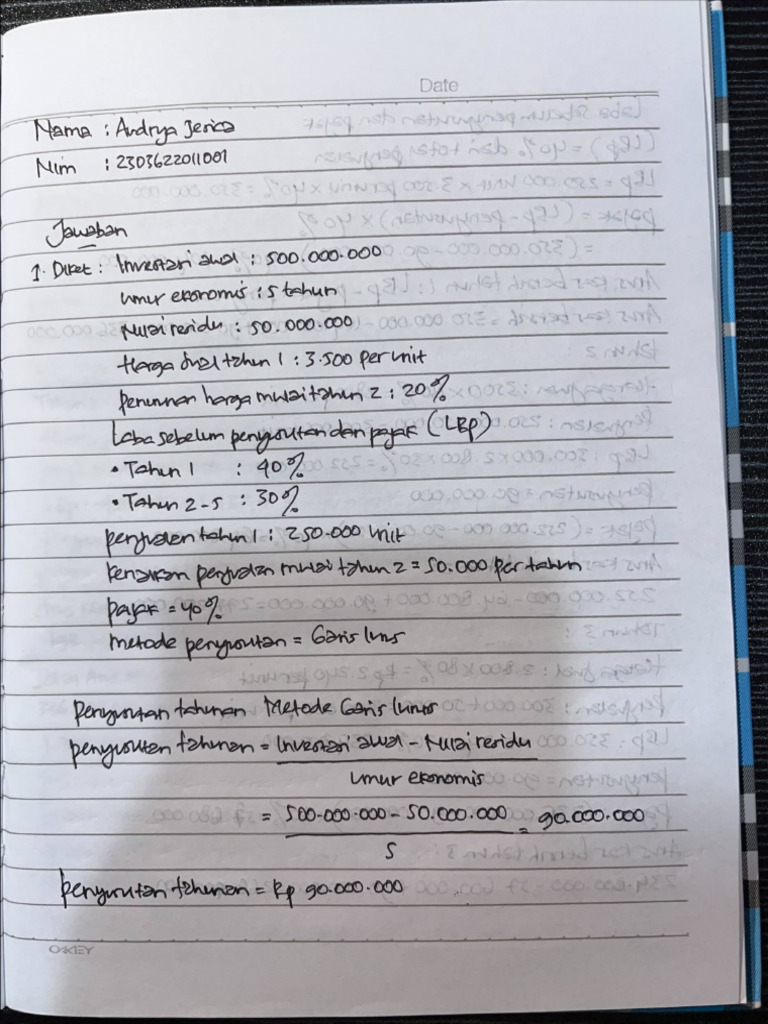 Date
Nama : Andrya Jerica
Nim : 2303622011001
Jawaban
1. Diket : Investasi awal : 500.000.000
umur ekonomis : 5 tahun
Nilai residu : 50.000.000
Harga jual tahun 1 : 3.500 per unit
penurunan harga mulai tahun 2 : 20%
Laba sebelum penyusutan dan pajak (LBP)
• Tahun 1 : 40%
• Tahun 2-5 : 30%
penjualan tahun 1 : 250.000 unit
kenaikan penjualan mulai tahun 2 = 50.000 per tahun
pajak = 40%
metode penyusutan = Garis lurus
penyusutan tahunan Metode Garis lurus
penyusutan tahunan = Investasi awal - Nilai residu
umur ekonomis
= 500.000.000 - 50.000.000 = 90.000.000
5
penyusutan tahunan = Rp 90.000.000
OKEY